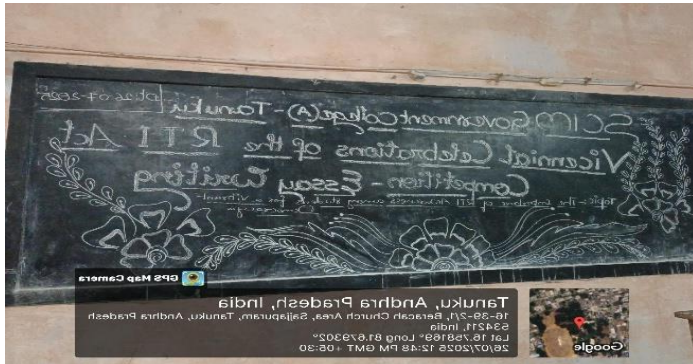 SCIM Government College(A) - Tanuku
Vicennial Celebrations of the RTI Act
Competition - Essay Writing
Topic:- The
of RTI Awareness among
for a vibrant
Democracy
GPS Map Camera
Tanuku, Andhra Pradesh, India
16-39-2/1, Beracah Church Area, Sajjapuram, Tanuku, Andhra Pradesh
534211, India
Lat 16.756169° Long 81.679302°
26/07/2025 12:48 PM GMT +05:30
Google